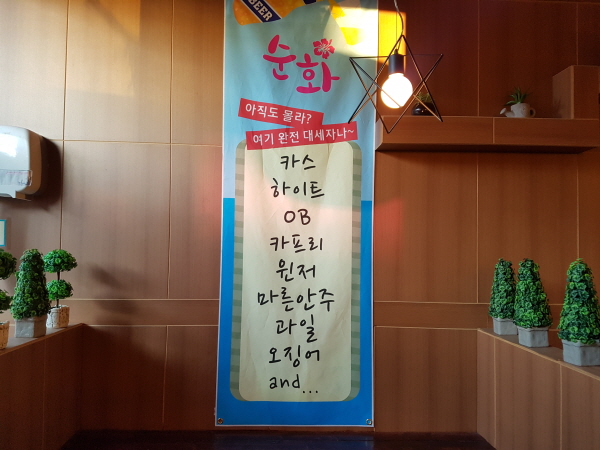 BEER
순화
아직도 몰라?
여기 완전 대세자나~
카스
하이트
OB
카프리
윈저
마른안주
과일
오징어
and...